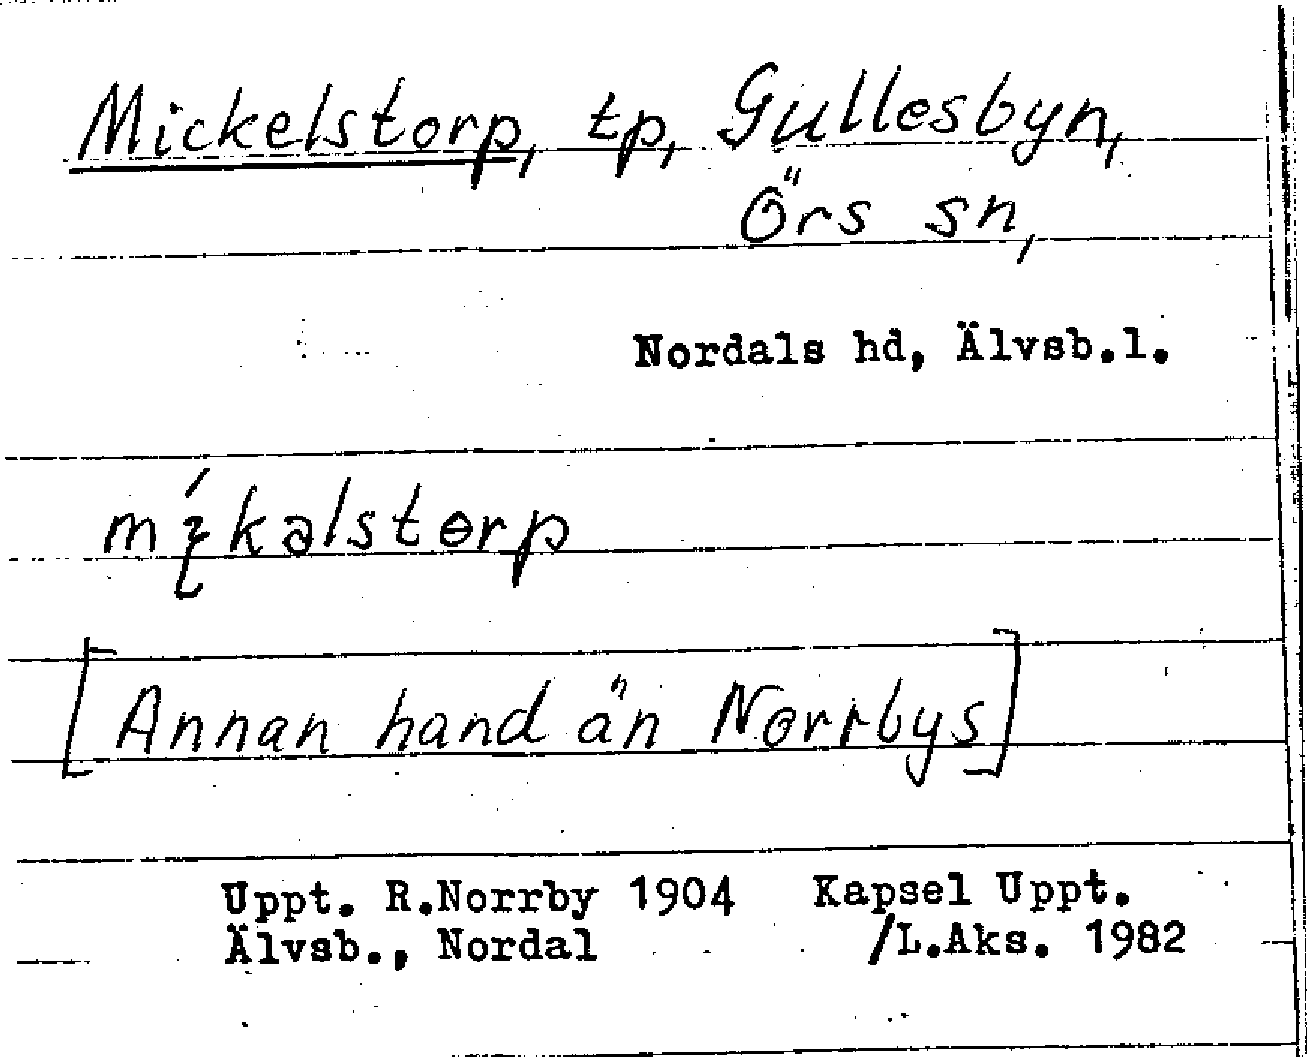 Mickelstorp, tp, Gullesbyn,
Örs sn,
Nordals hd, Älvsb.l.
[Annan hand än Norrbys]
Uppt. R.Norrby 1904 Kapsel Uppt.
Älvsb., Nordal /L.Aks. 1982